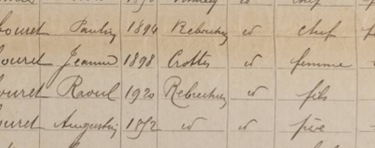 ouret Paulin 1894 Rebrechien id chef
ouret Jeanne 1898 Crottes id femme
ouret Raoul 1920 Rebrechien id fils
ouret Augustin 1872 id id père